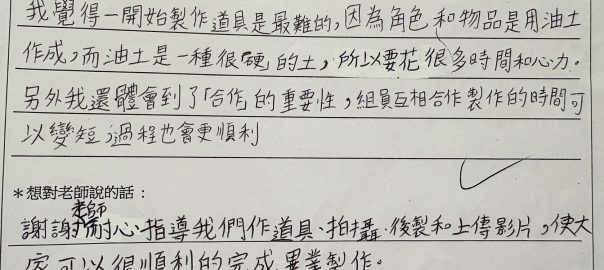 我覺得一開始製作道具是最難的,因為角色和物品是用油土
作成,而油土是一種很硬的土,所以要花很多時間和心力。
另外我還體會到了「合作」的重要性,組員互相合作製作的時間可
以變短,過程也會更順利
*想對老師說的話:
謝謝老師耐心指導我們作道具、拍攝、後製和上傳影片,使大
家可以很順利的完成畢業製作。